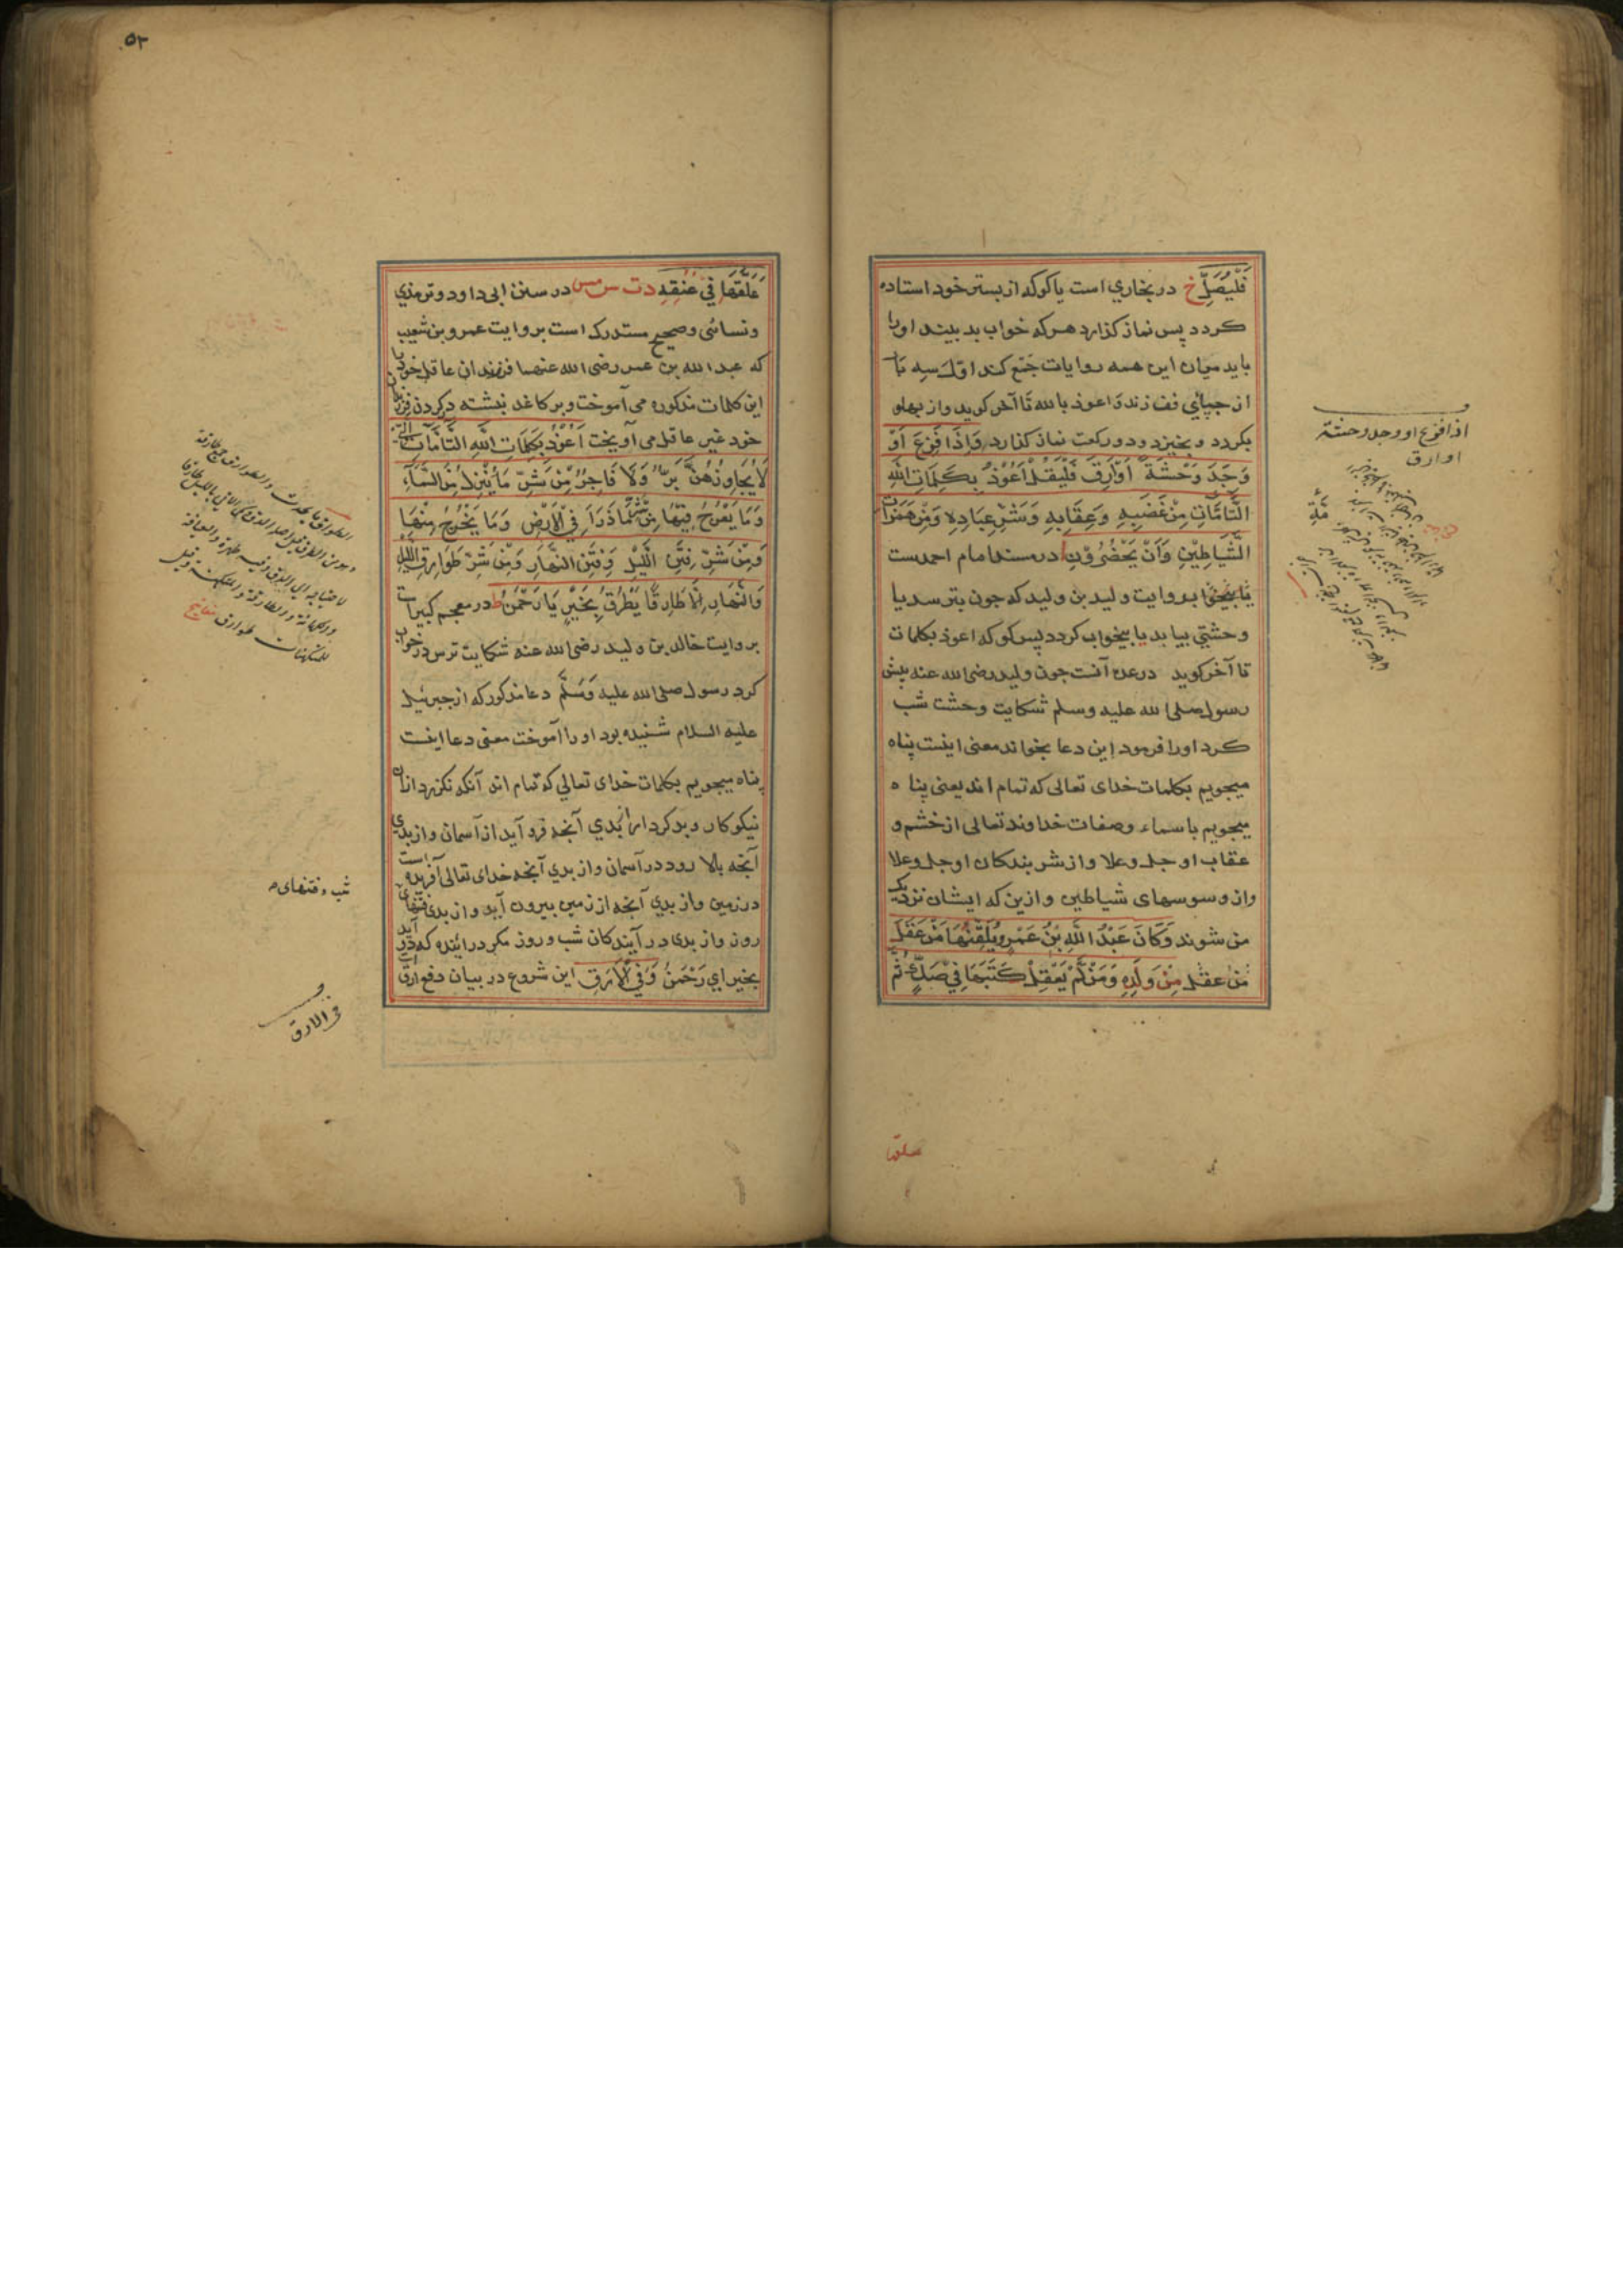 فَلْيُصَلِّ خ در بخاري است یا کوکه از بستر خود استاده
کردد پس نماز کذارد هرکه خواب بد بیند اورا
باید میان این همه روایات جمع کند اوّل سه بار
از چپایي تف زند و اعوذ بالله تا آخر کوید و از پهلو
بکردد و بخیزد و دو رکعت نماز کذارد وَاِذَا فَزِعَ اَوْ
وَجَدَ وَحْشَةً اَوْ اَرِقَ فَلْيَقُلْ اَعُوْذُ بِكَلِمَاتِ اللّٰهِ
التَّامَّاتِ مِنْ غَضَبِهِ وَعِقَابِهِ وَشَرِّ عِبَادِهِ وَمِنْ هَمَزَاتِ
الشَّيَاطِيْنِ وَاَنْ يَحْضُرُوْنِ ا در مسند امام احمدست
بروایت ولید بن ولید که چون بترسد یا
وحشتي بیابد یا بیخواب کردد پس کو که اعوذ بکلمات
تا آخر کوید در عده آنست چون ولید رضی الله عنه پیش
رسول صلی الله علیه وسلم شکایت وحشت شب
کرد اورا فرمود این دعا بخواند معنی اینست پناه
میجویم بکلمات خدای تعالی که تمام اند یعنی پناه
میجویم باسماء وصفات خداوند تعالی از خشم و
عقاب او جل وعلا و از شر بندکان او جل وعلا
واز وسوسهای شیاطین و ازین که ایشان نزدیک
من شوند وَكَانَ عَبْدُ اللّٰهِ بْنُ عَمْرٍو يُلَقِّنُهَا مَنْ عَقَلَ
من عقل مِنْ وَلَدِهِ وَمَنْ لَّمْ يَعْقِلْ كَتَبَهَا فِيْ صَكٍّ ثُمَّ
اذا فزع او وجد وحشة
او ارق
علقها
۵۳
عَلَّقَهَا فِيْ عُنُقِهِ دت س مس در سنن ابی داود و ترمذي
ونسائی وصحیح مستدرک است بروایت عمرو بن شعیب
که عبدالله بن عمر رضی الله عنهما فرزندان عاقل خود را
این کلمات مذکوره می آموخت و بر کاغد نبشته در کردن فرزندان
خود غیر عاقل می آویخت اَعُوْذُ بِكَلِمَاتِ اللّٰهِ التَّامَّاتِ الَّتِيْ
لَا يُجَاوِزُهُنَّ بَرٌّ وَلَا فَاجِرٌ مِّنْ شَرِّ مَا يَنْزِلُ مِنَ السَّمَآءِ
وَمَا يَعْرُجُ فِيْهَا مِنْ شَرِّ مَا ذَرَاَ فِي الْاَرْضِ وَمَا يَخْرُجُ مِنْهَا
وَمِنْ شَرِّ فِتَنِ اللَّيْلِ وَفِتَنِ النَّهَارِ وَمِنْ شَرِّ طَوَارِقِ اللَّيْلِ
وَالنَّهَارِ اِلَّا طَارِقًا يَّطْرُقُ بِخَيْرٍ يَا رَحْمٰنُ ط در معجم کبیر است
بروایت خالد بن ولید رضی الله عنه شکایت ترس در خواب
کرد رسول صلی الله علیه وَسَلَّم دعا مذکور که از جبرئیل
علیه السلام شنیده بود اورا آموخت معنی دعا اینست
پناه میجویم بکلمات خدای تعالي که تمام اند آنکه نکزرد ازان
نیکوکار و بد کردار از بدي آنچه فرود آید از آسمان و از بدي
آنچه بالا رود در آسمان و از بدي آنچه خدای تعالی آفریده است
در زمین و از بدي آنچه از زمین بیرون آید و از بدي فتنهای
روز و از بدي در آیندکان شب و روز مکر در آینده که در آید
بخیر اي رَحْمٰنُ وَفِي الْاَرَقِ این شروع در بیان دفع ارق است
شب و فتنهای
فی الارق